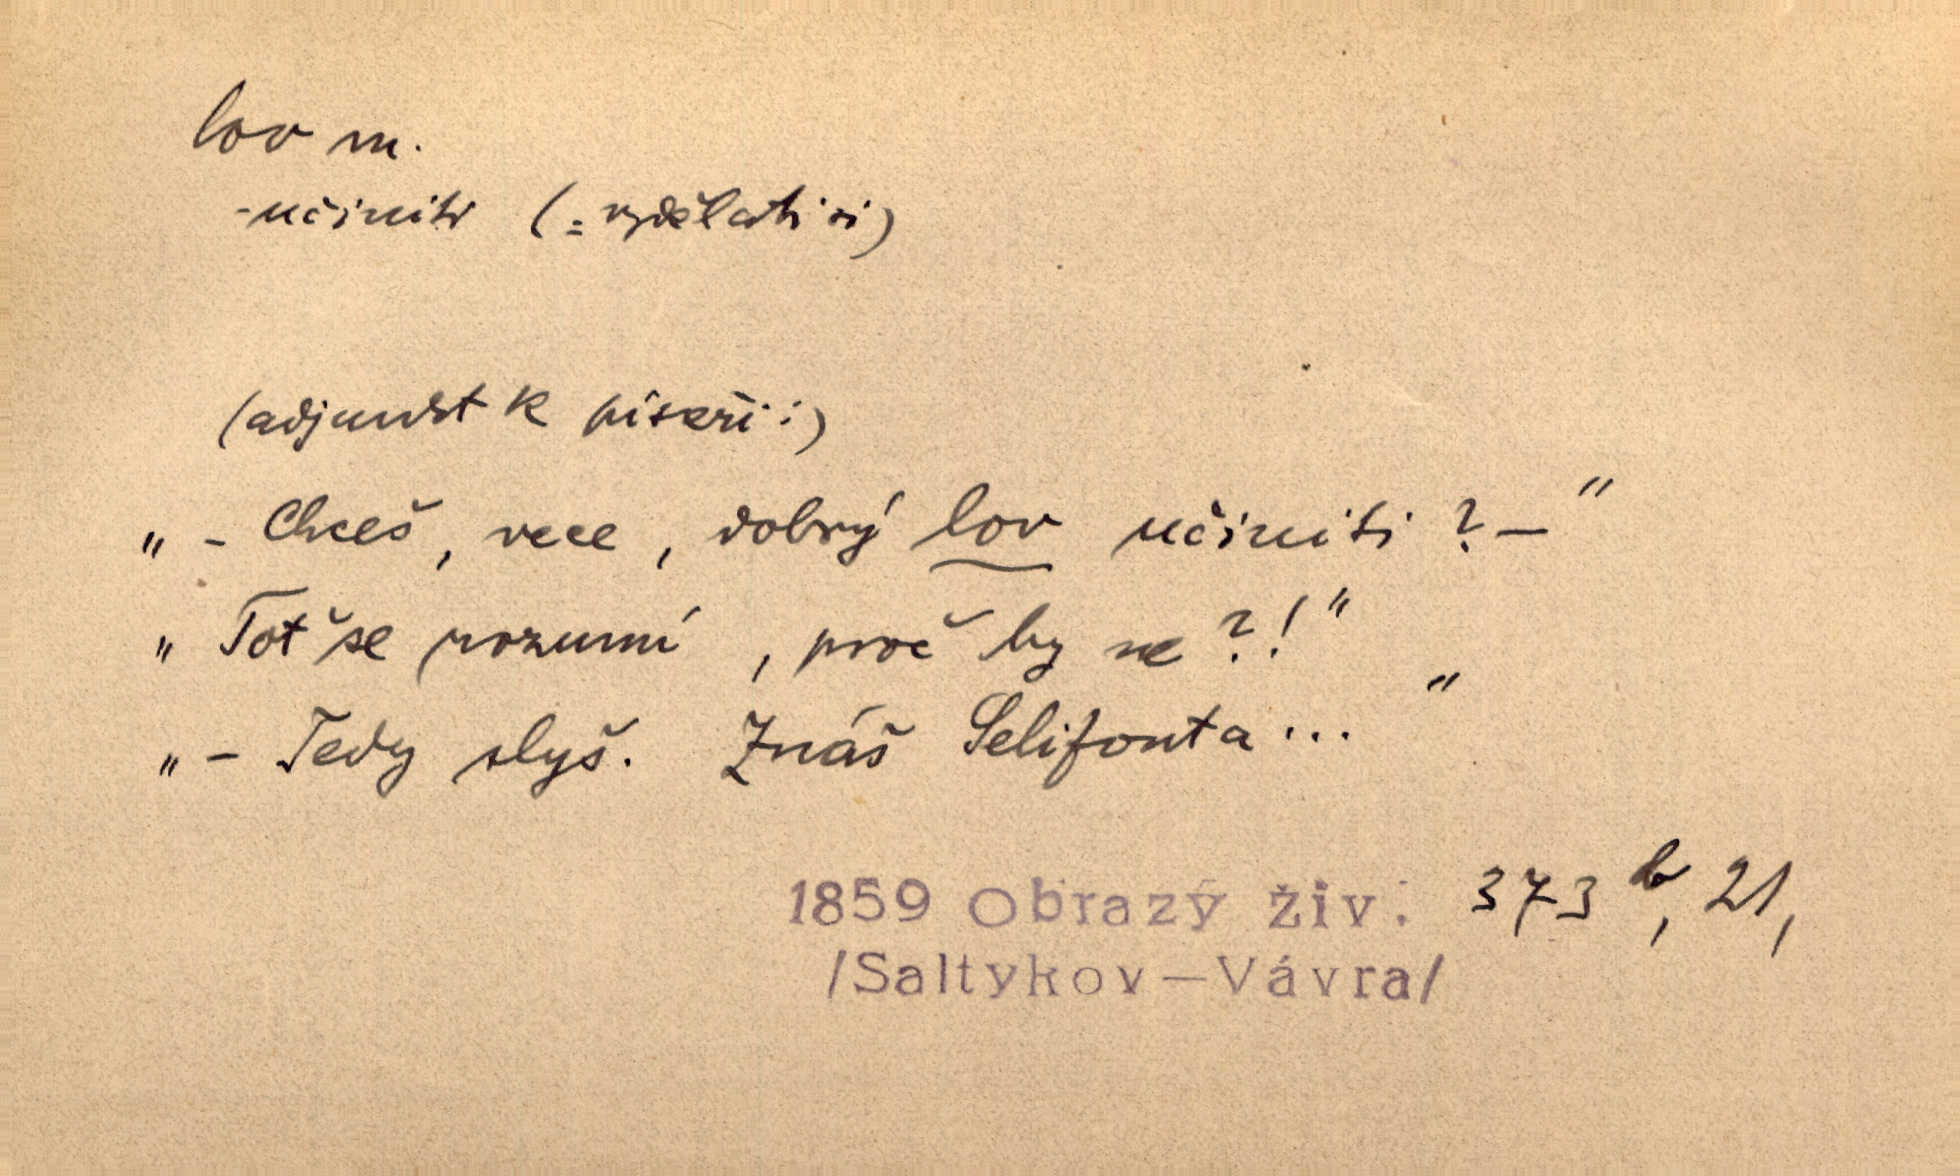 lov m.
-učiniti (= vydělati si)
(adjunkt k písaři:)
„ - Chceš, vece, dobrý lov učiniti ? — "
„ Toť se rozumí, proč by ne ?! "
„ - Tedy slyš. Znáš Selifonta ... "
1859 Obrazy živ. 373 b, 21,
/Saltykov—Vávra/